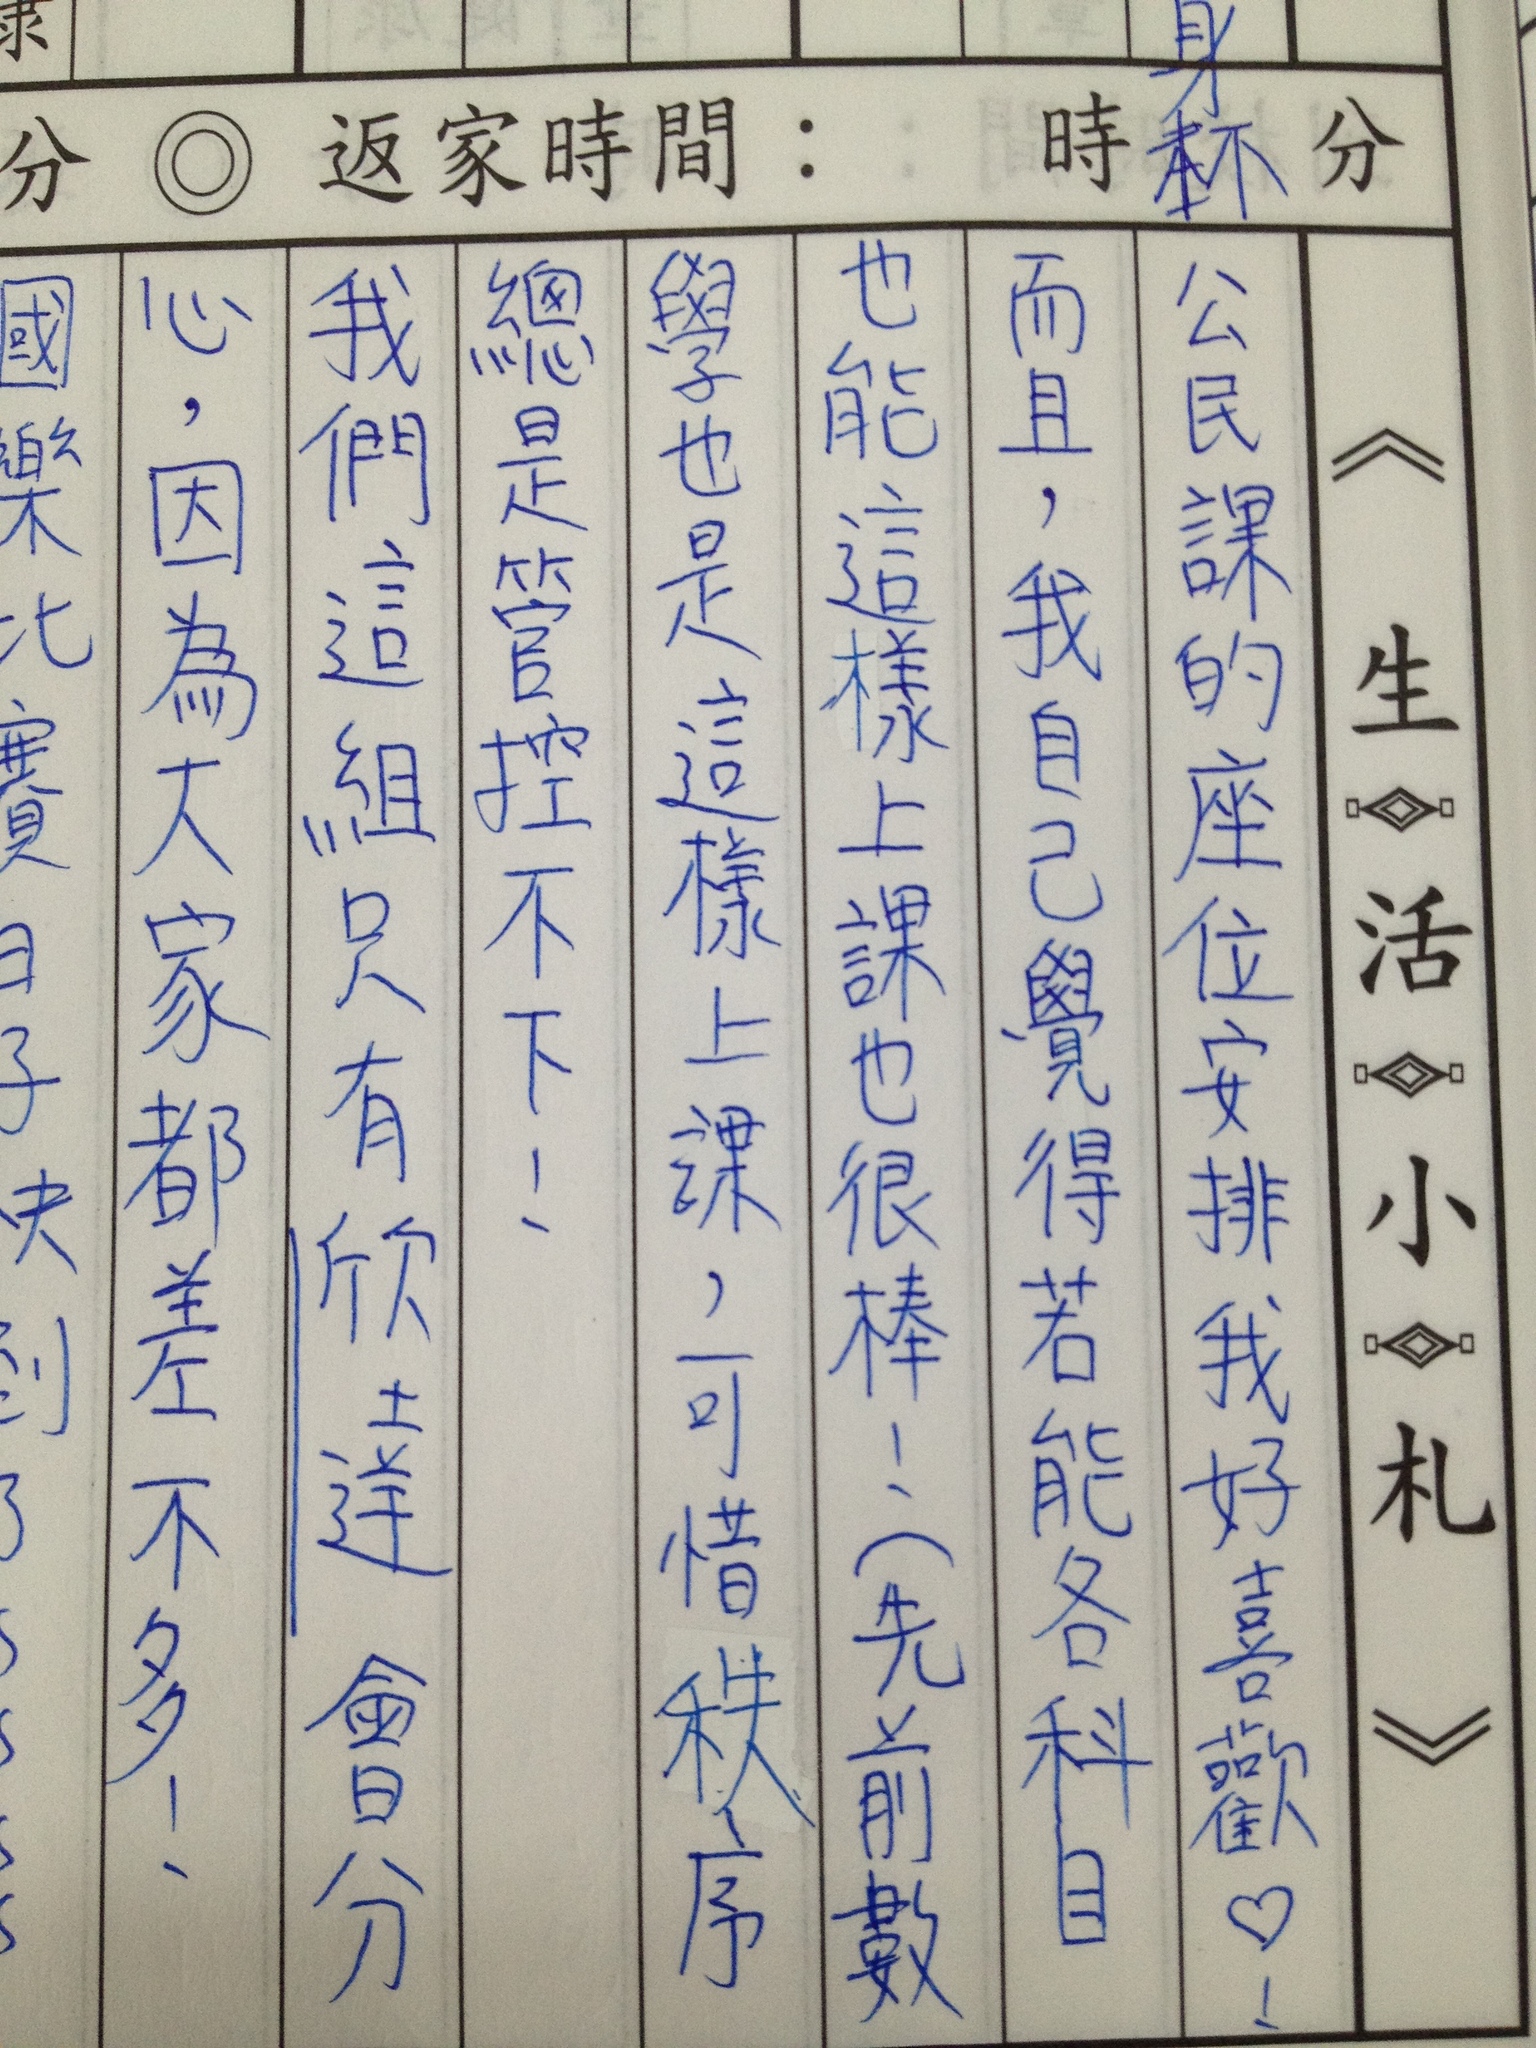 分 ◎ 返家時間： 時 分
《 生活小札 》
公民課的座位安排我好喜歡♡！
而且，我自己覺得若能各科目
也能這樣上課也很棒！（先前數
學也是這樣上課，可惜秩序
總是管控不下！
我們這組只有欣達會分
心，因為大家都差不多！
國樂比賽日子快到了